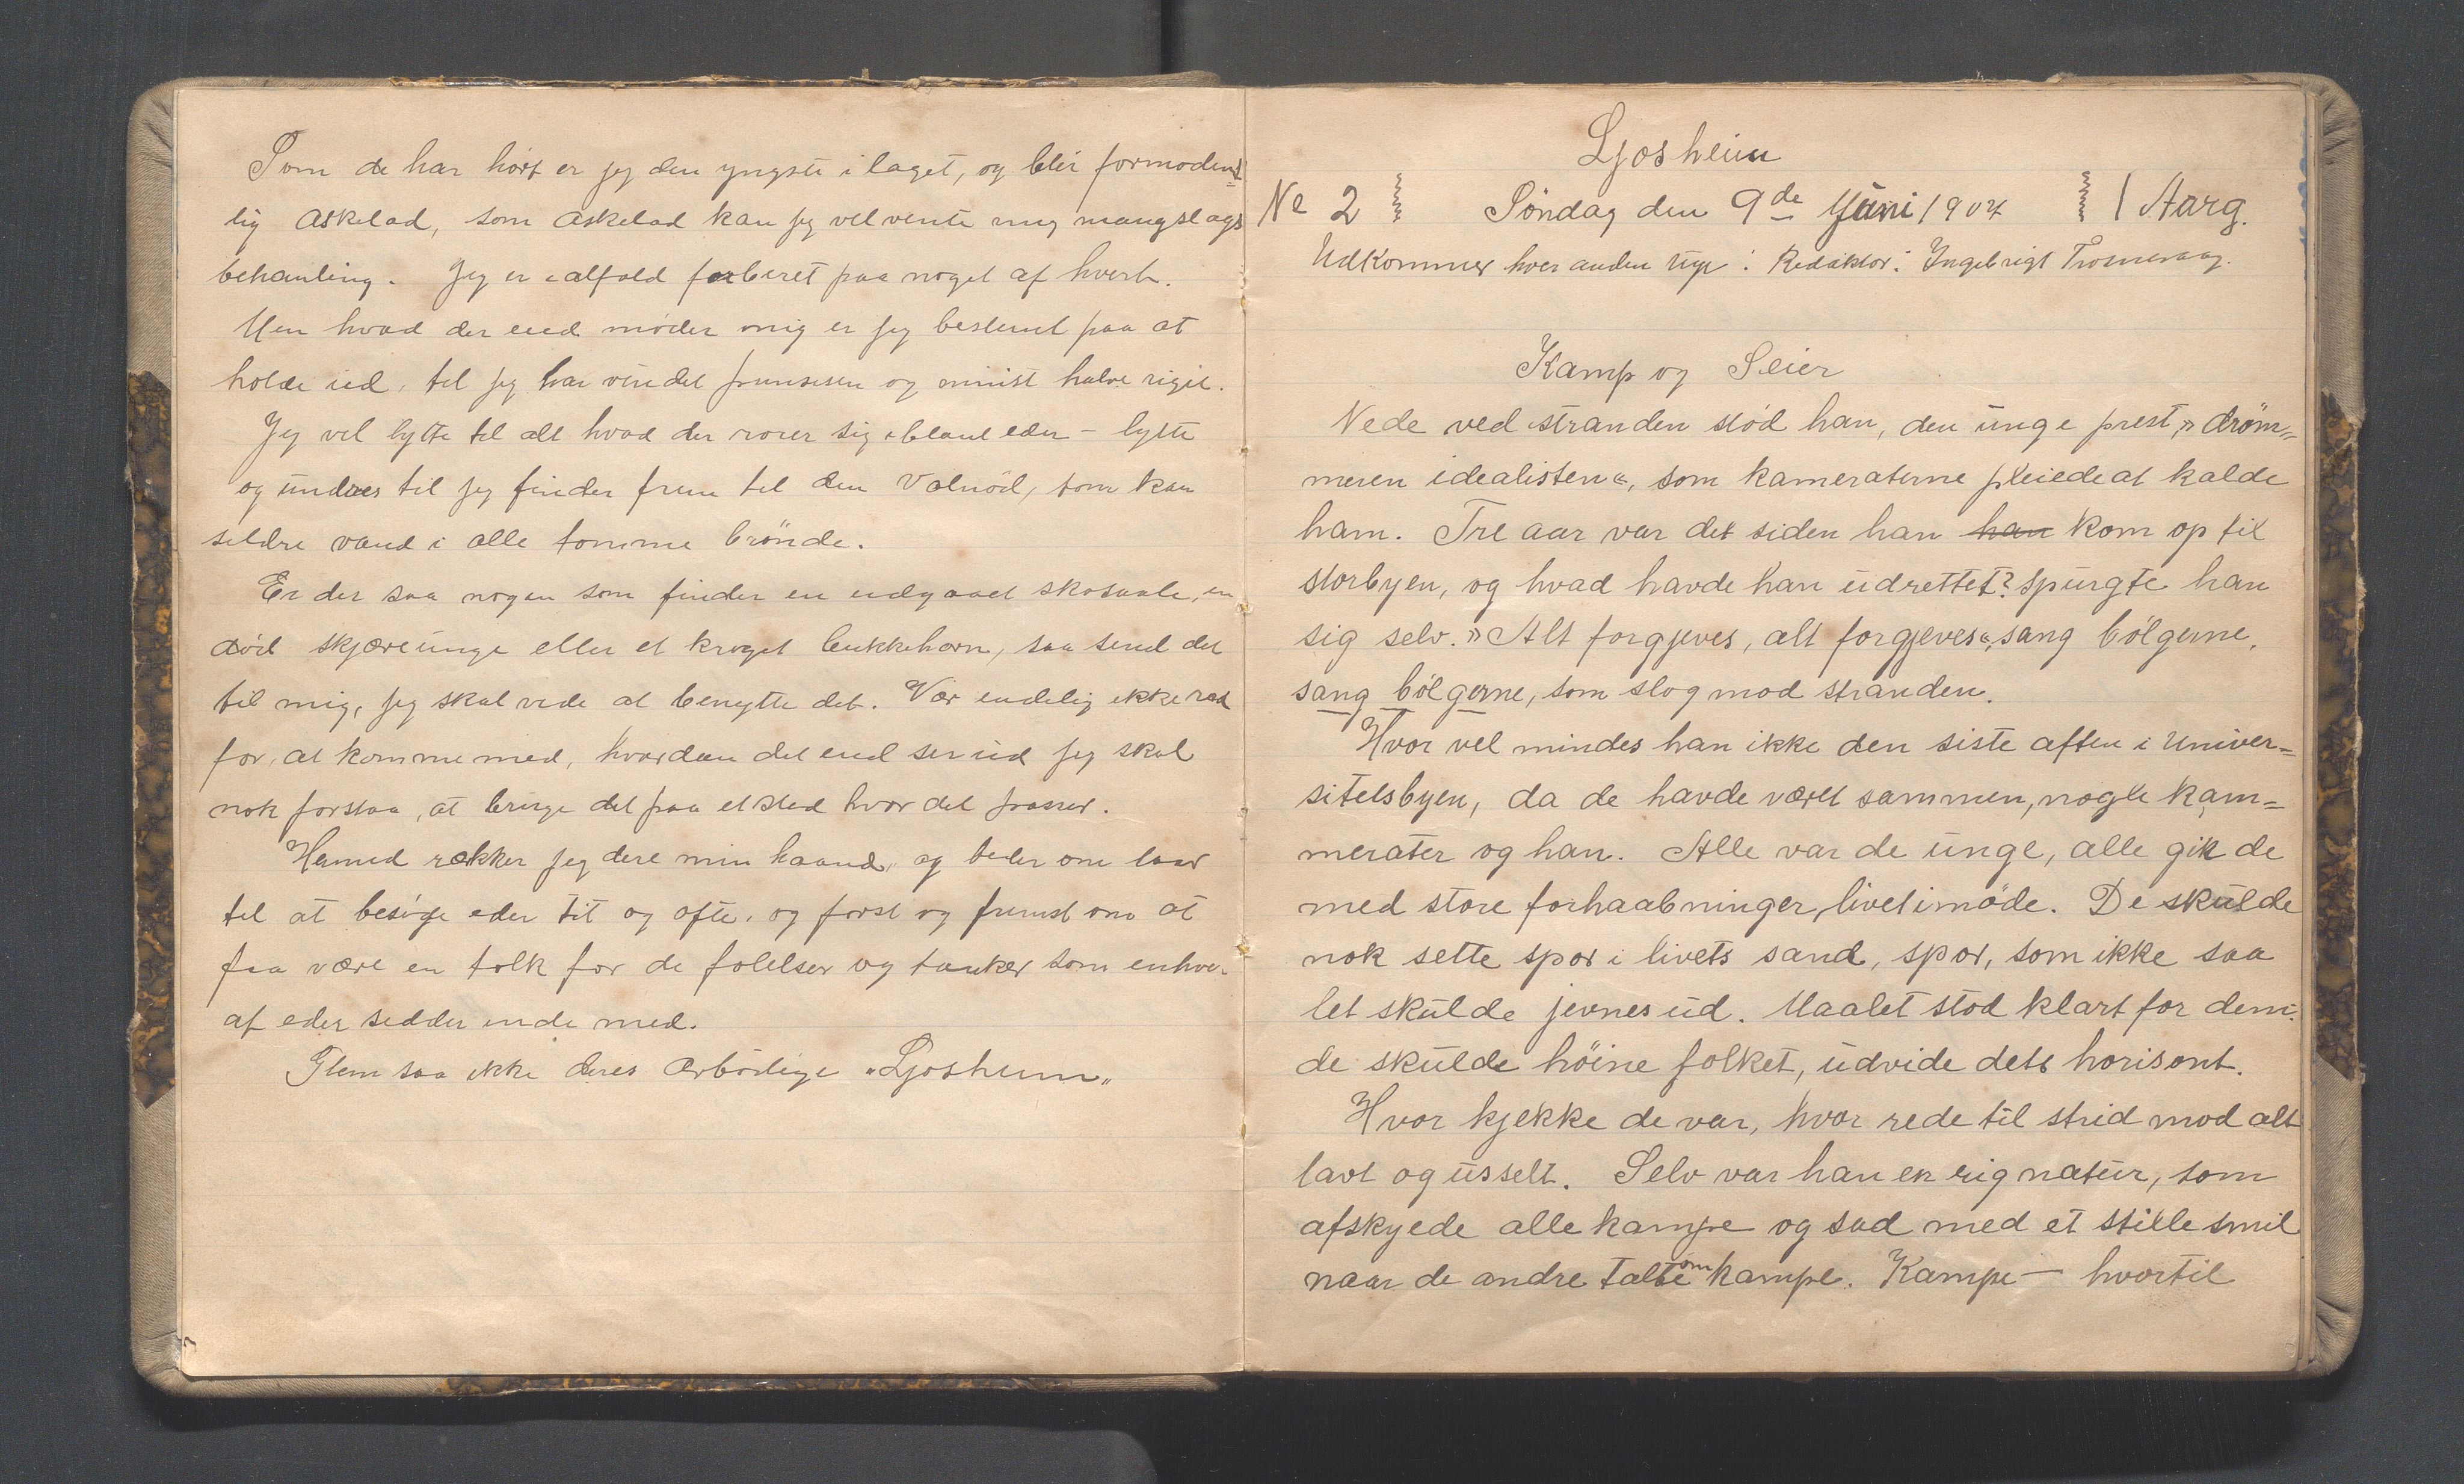 Som de har hørt er jeg den yngste i laget, og blir formodent=
lig Askelad, som Askelad kan jeg vel vente mig mangslags
behanling. Jeg er ialfald forberet paa noget af hvert.
Men hvad der end møder mig er jeg bestemt paa at
holde ud, til jeg har vundet prinsesen og minst halve riget.
Jeg vil lytte til alt hvad der rører sig iblant eder – lytte
og undres til jeg finder frem til den Valnød, som kan
sildre vand i alle tomme brønde.
Er der saa nogen som finder en udgaaet skosaale, en
død skjæreunge eller et kroget bukkehorn, saa send det
til mig, jeg skal vide at benytte det. Vær endelig ikke ræd
for, at komme med, hvordan det end ser ud jeg skal
nok forstaa, at bruge det paa et sted hvor det passer.
Hermed rækker jeg dere min haand, og beder om lov
til at besøge eder tit og ofte, og først og fremst om at
faa være en tolk for de følelser og tanker som enhver
af eder sidder inde med.
Glem saa ikke deres ærbødige „Ljosheim„
Ljosheim
No 2 Søndag den 9de Juni 1907 1 Aarg.
Udkommer hver anden uge : Redaktør: Ingebrigt
Kamp og Seier
Nede ved stranden stod han, den unge prest, »drøm=
meren idealisten«, som kameraterne pleiede at kalde
ham. Tre aar var det siden han han kom op til
storbyen, og hvad havde han udrettet? spurgte han
sig selv. »Alt forgjeves, alt forgjeves«, sang bølgerne,
sang bølgerne, som slog mod stranden.
Hvor vel mindes han ikke den siste aften i Univer=
sitetsbyen, da de havde været sammen, nogle kam=
merater og han. Alle var de unge, alle gik de
med store forhaabninger, livet imøde. De skulde
nok sette spor i livets sand, spor, som ikke saa
let skulde jevnes ud. Maalet stod klart for dem:
de skulde høine folket, udvide dets horisont.
Hvor kjekke de var, hvor rede til strid mod alt
lavt og usselt. Selv var han en rig natur, som
afskyede alle kampe og sad med et stille smil
naar de andre talte om kampe. Kampe – hvortil